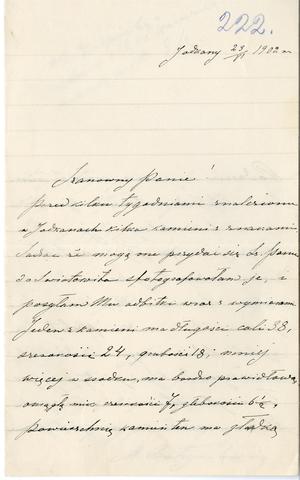 222.
Jodkany 23/VI 1902 r
Szanowny Panie!
Przed kilku tygodniami znaleziono
w Jodkanach kilka kamieni z znakami.
Sądząc że mogą one przydać się Sz. Panu
do Światowita sfotografowałam je, i
posyłam Mu odbitki wraz z wymiarami
Jeden z kamieni ma długości cali 38,
szerokości 24, grubości 18; mniej
więcej w środku, ma bardzo prawidłową
okrągłą misę szerokości 7, głębokości 6½,
powierzchnię kamień ten ma gładką